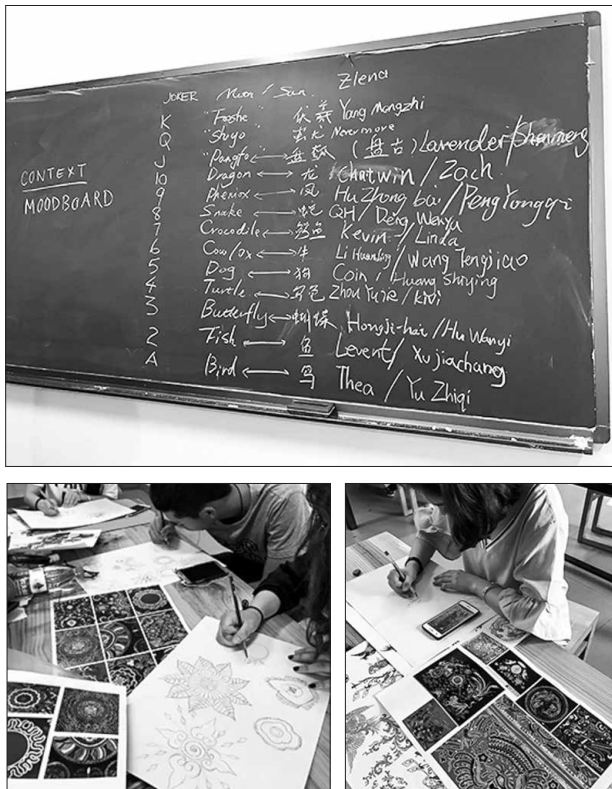 JOKER Moon / Sun Zlena
K "Fooshe" 伏羲 Yang Mongzhi
Q "Shugo" Nevermore
J "Pangfo" 盘瓠 (盘古) Lavender/
10 Dragon 龙 Chatwin / Zach
9 Pheniox 凤 Hu Zhong bai / Peng Yongqi
8 Snake 蛇 QH / Deng Wenya
7 Crocodile 鳄鱼 Kevin / Linda
6 Cow/ox 牛 Li / Wang Tengjiao
5 Dog 狗 Coin / Huang Shiying
4 Turtle Zhou Yujie / Kivi
3 Butterfly 蝴蝶 Hongji-hai / Hu Wanyi
2 Fish 鱼 Levent / Xu jiachang
A Bird 鸟 Thea / Yu Zhiqi
CONTEXT
MOODBOARD